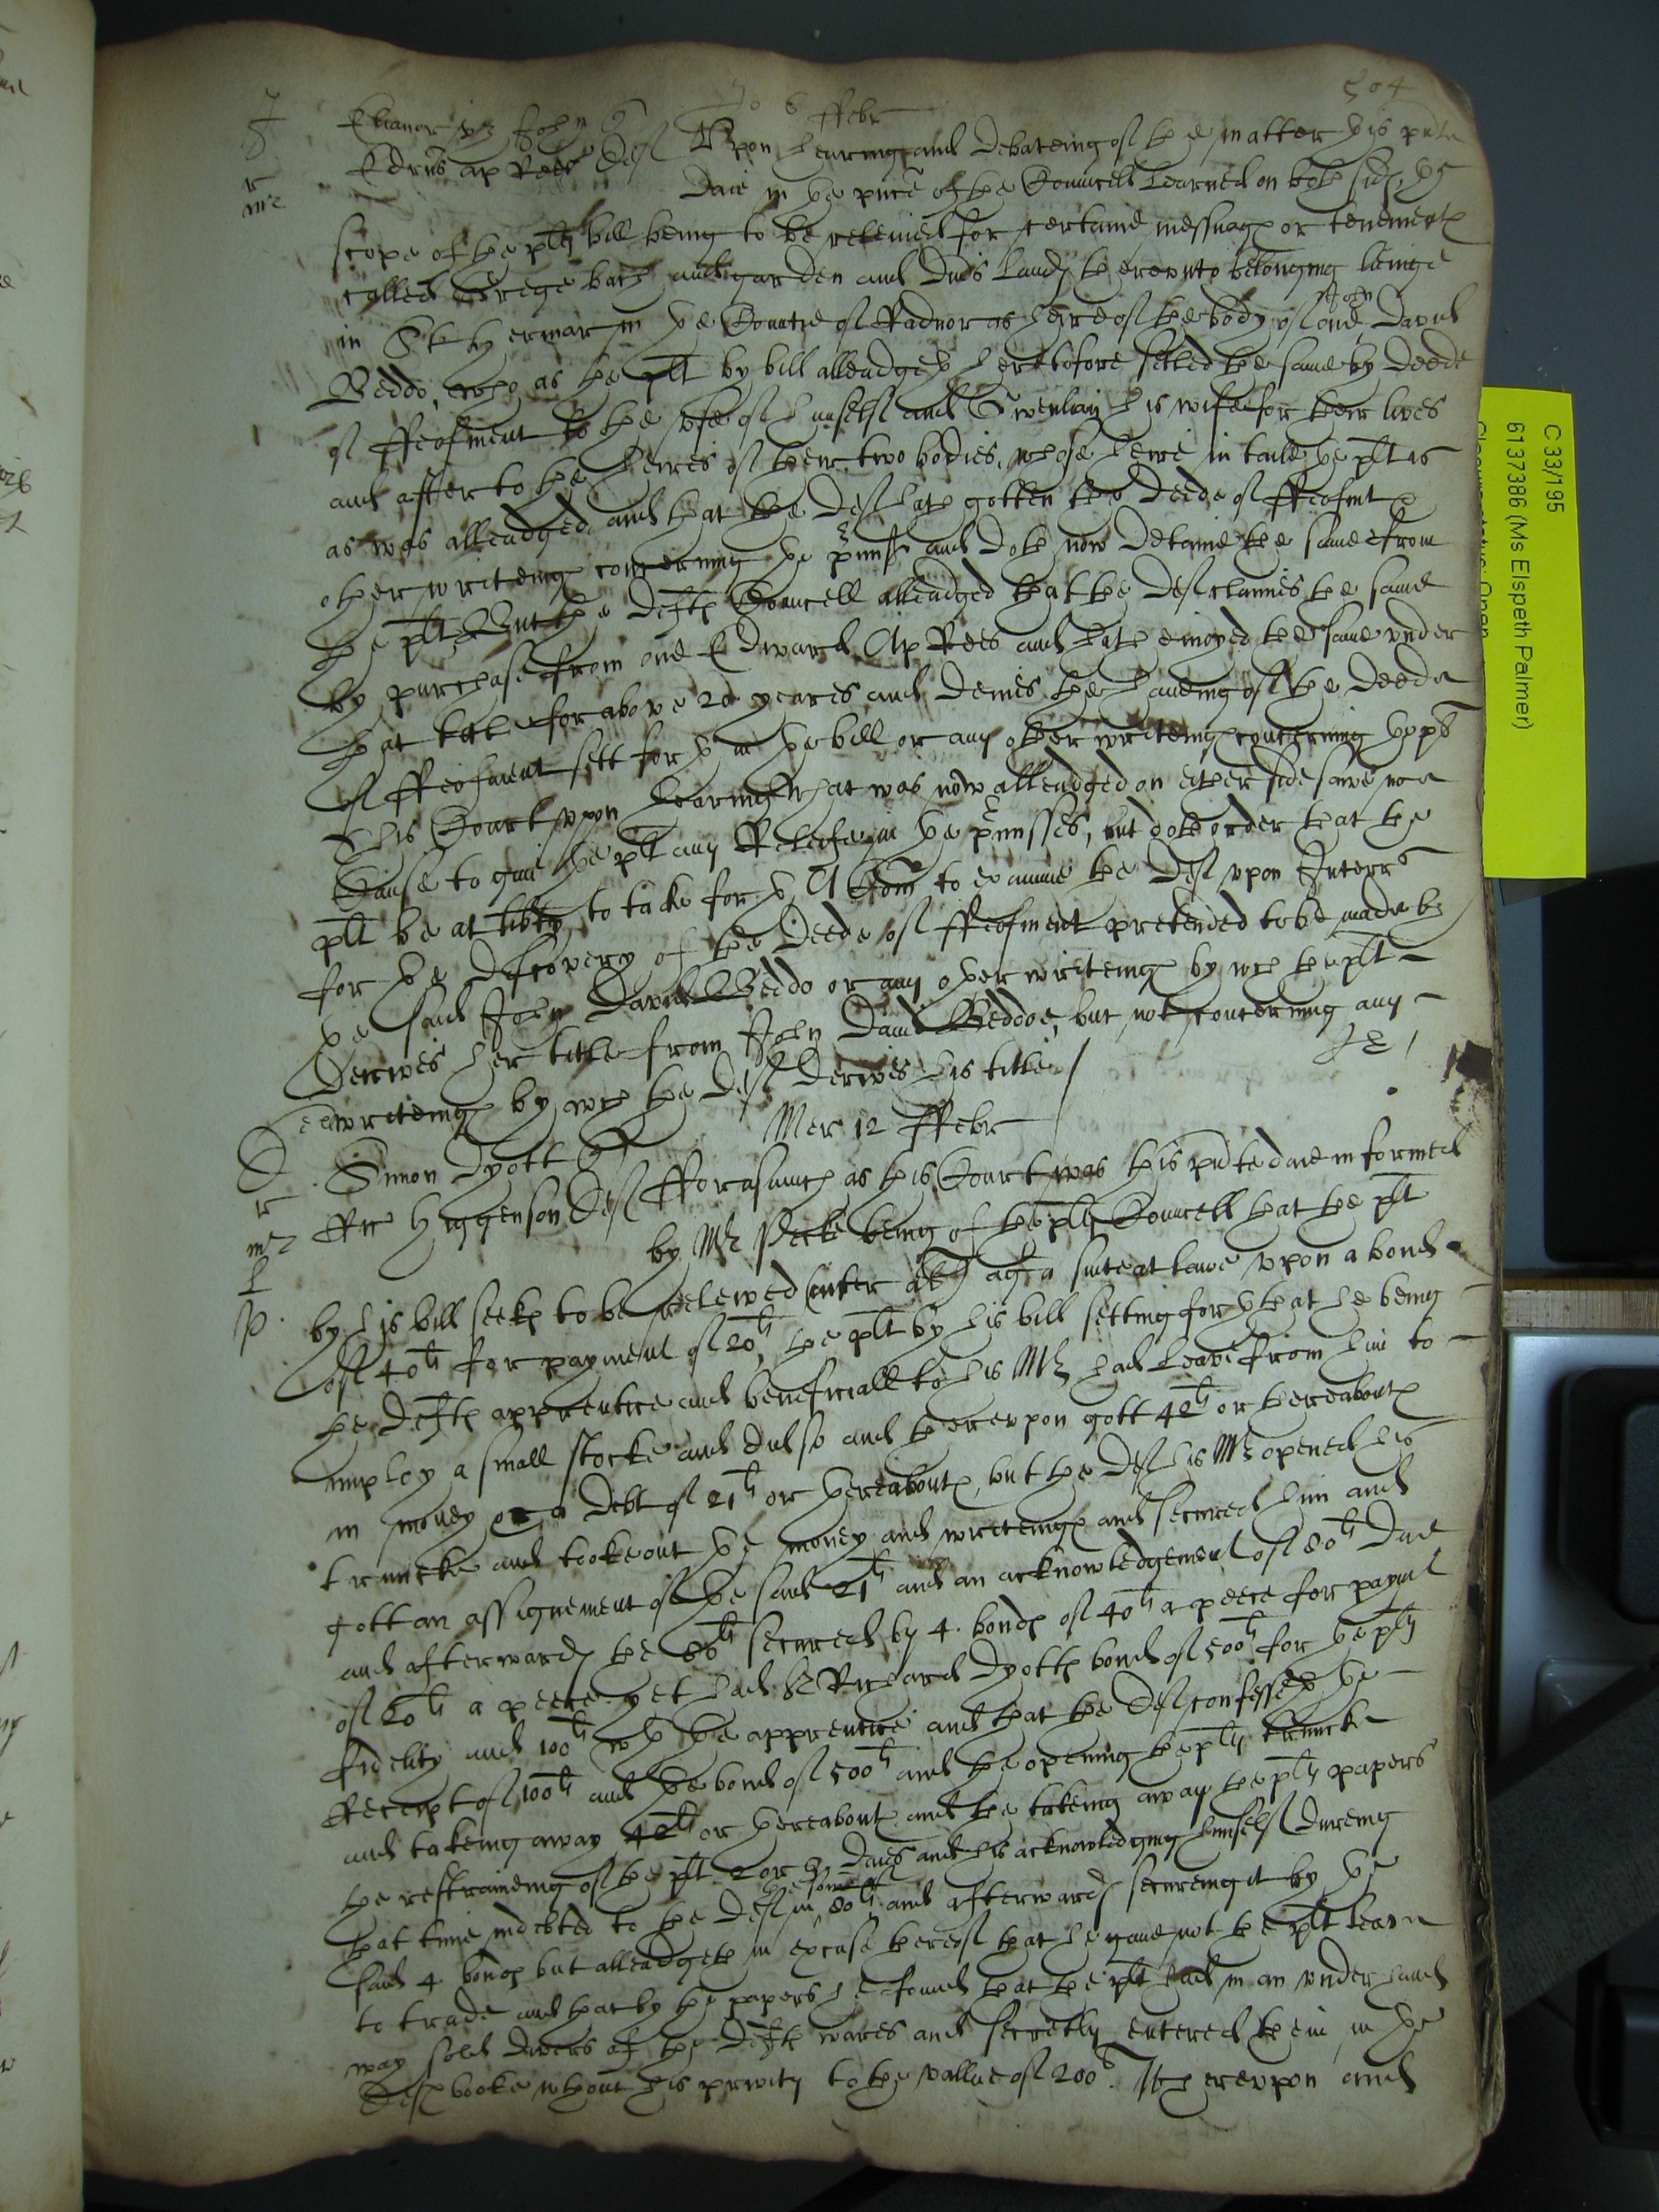 504
6 ffebr
Elianor John q
Edrus ap Rees def Vpon hearing and debateing of the matter this pnte
daie in the pnce of the Councell Learned on both sides, the
scope of the plts bill being to be releived for certaine messuages or tenements
called and garden and Lands therevnto belonging lieinge
in the Countie of Radnor as heire of the body of one John David
Beddo, who as the plt by bill alleadgeth heretofore setled the same by deede
of ffeofment to the vse of himself and Gwenlian his wife for their lives
and after to the heires of their two bodies, whose heire in taile the plt is
as was alleadged and that the def hath gotten the deede of ffeofmt &
other writeings concerning the pmiss and doth now detaine the same from
the plt But the defts Councell alleadged that the def claimes the same
by purchase from one Edward Ap Rees and hath enioyed the same vnder
that title for above 20 yeares and denies the haueing of the deede
of ffeofment sett forth in the bill or any other writeings concerning the
This Court vpon hearing what was now alleadged on either side sawe noe
Cause to giue the plt any Releife in the pmisses, but doth order that the
plt be at libty to take forth A Com to examine the def vpon Interrs
for the discovery of the deede of ffeofment pretended to be made by
the said John David Beddo or any other writeings by wch the plt
derives her title from John David Beddoe, but not concerning any
writeings by wch the def derives his title /
Mer 12 ffebr
Simon Dyott q
ffr Higgenson def fforasmuch as this Court was this pnte daie informed
by Mr Pecke being of the plts Councell that the plt
by his bill seeks to be releived (inter al) agt a suite at lawe vpon a bond
of 40li for payment of 20li, the plt by his bill setting forth that he being
the defts apprentice and beneficiall to his Mr had leave from him to
imploy a small stocke and did so and therevpon gott 42li or thereabouts
in money & a debt of 21li or thereabouts, but the def his Mr opened his
truncke and tooke out the money and writeings and secured him and
gott an assignement of the said 21li and an acknowledgement of 80li due
and afterwards the 80li secured by 4. bonds of 40li a peece for paymt
of 20li a peece, yet had Sr Richard Dyotts bond of 500li for the plts
fidelity and 100li wth the apprentice and that the def confesseth the
Receipt of 100li and the bond of 500li and the opening the plts truncke
and takeing away 42li or thereabouts and the takeing away the plts papers
the restraineing of the plt 2 or 3 daies and his acknowledging himself dureing
that time indebted to the def in the some of 80li and afterwards secureing it by the
said 4 bonds but alleadgeth in excuse thereof that he gaue not the plt leaue
to trade and that by the papers he found that the plt had in an vnder hand
way sold divers of the defts wares and secretly entered them in the
defts booke wthout his privity to the vallue of 200li. Wherevpon and
C 33/195
6137386 (Ms Elspeth Palmer)